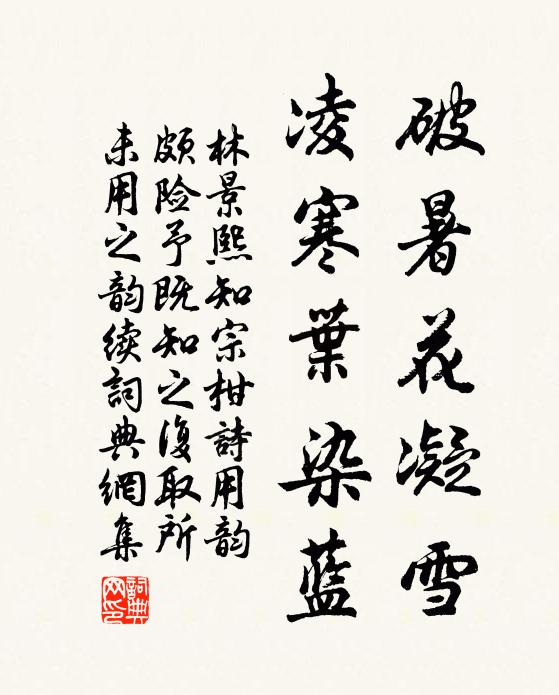 破暑花凝雪
凌寒葉染藍
林景熙知宗柑詩用韵
颇险予既知之復取所
未用之韵续詞典網集
詞典網印